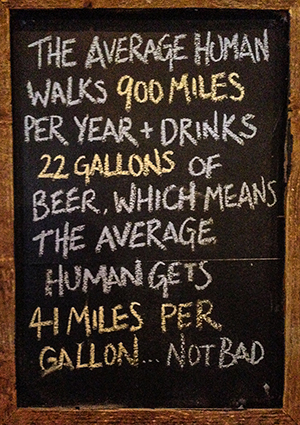 THE AVERAGE HUMAN
WALKS 900 MILES
PER YEAR + DRINKS
22 GALLONS OF
BEER, WHICH MEANS
THE AVERAGE
HUMAN GETS
41 MILES PER
GALLON... NOT BAD